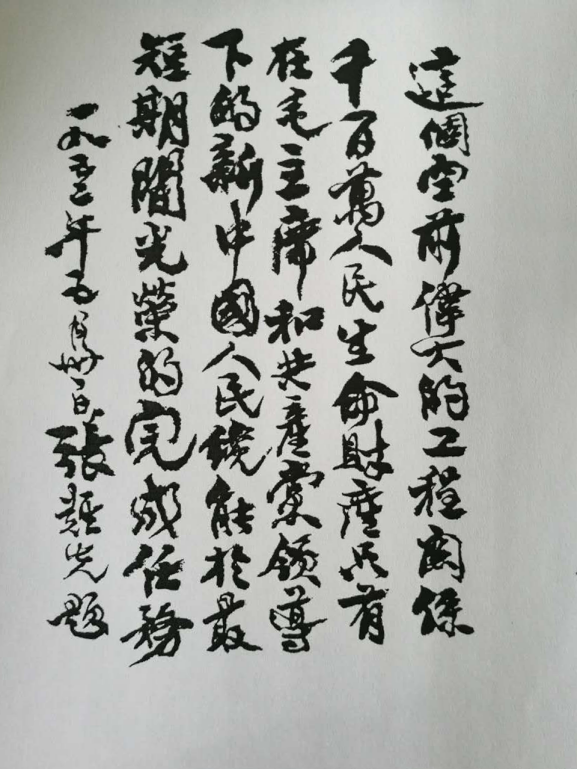 這個空前偉大的工程關係
千百萬人民生命財產只有
在毛主席和共產黨領導
下的新中國人民纔能於最
短期間光榮的完成任務
一九五二年五月卅一日張難先題